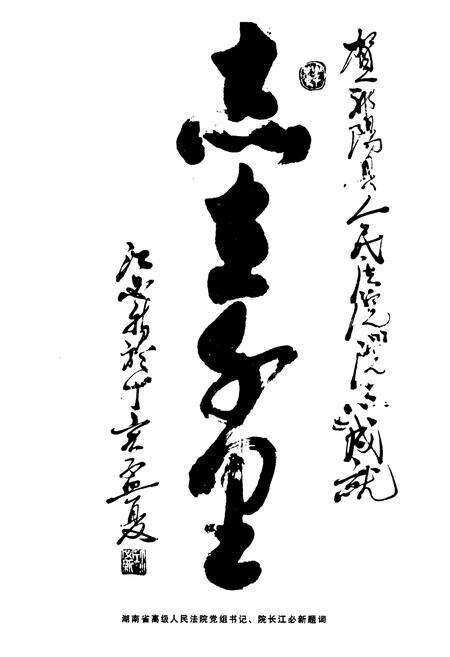 贺陽县人民法院院志誠就
志在千里
江必新於丁亥孟夏
湖南省高级人民法院党组书记、院长江必新题词